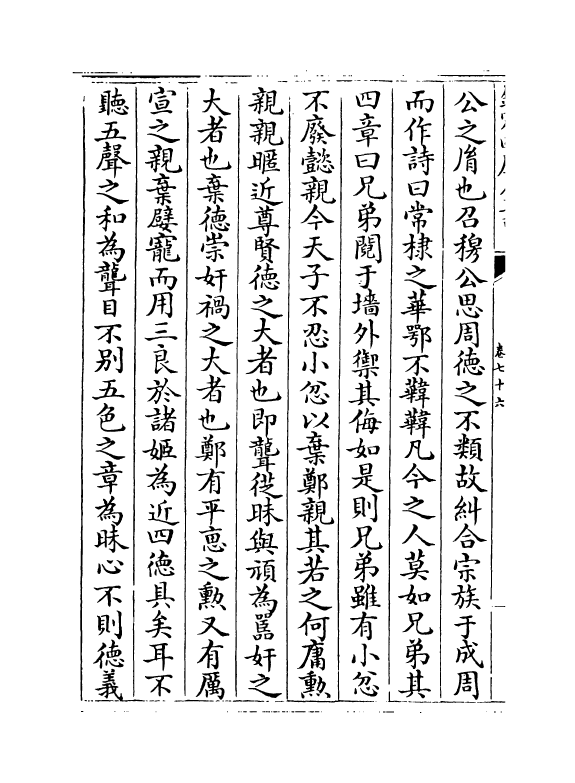 卷七十六
公之胤也召穆公思周徳之不類故糾合宗族于成周
而作詩曰常棣之華鄂不韡韡凡今之人莫如兄弟其
四章曰兄弟鬩于墻外禦其侮如是則兄弟雖有小忿
不廢懿親今天子不忍小忿以棄鄭親其若之何庸勲
親親暱近尊賢徳之大者也即聾從昧與頑為嚚奸之
大者也棄徳崇奸禍之大者也鄭有平惠之勲又有厲
宣之親棄嬖寵而用三良於諸姬為近四徳具矣耳不
聽五聲之和為聾目不别五色之章為昧心不則徳義